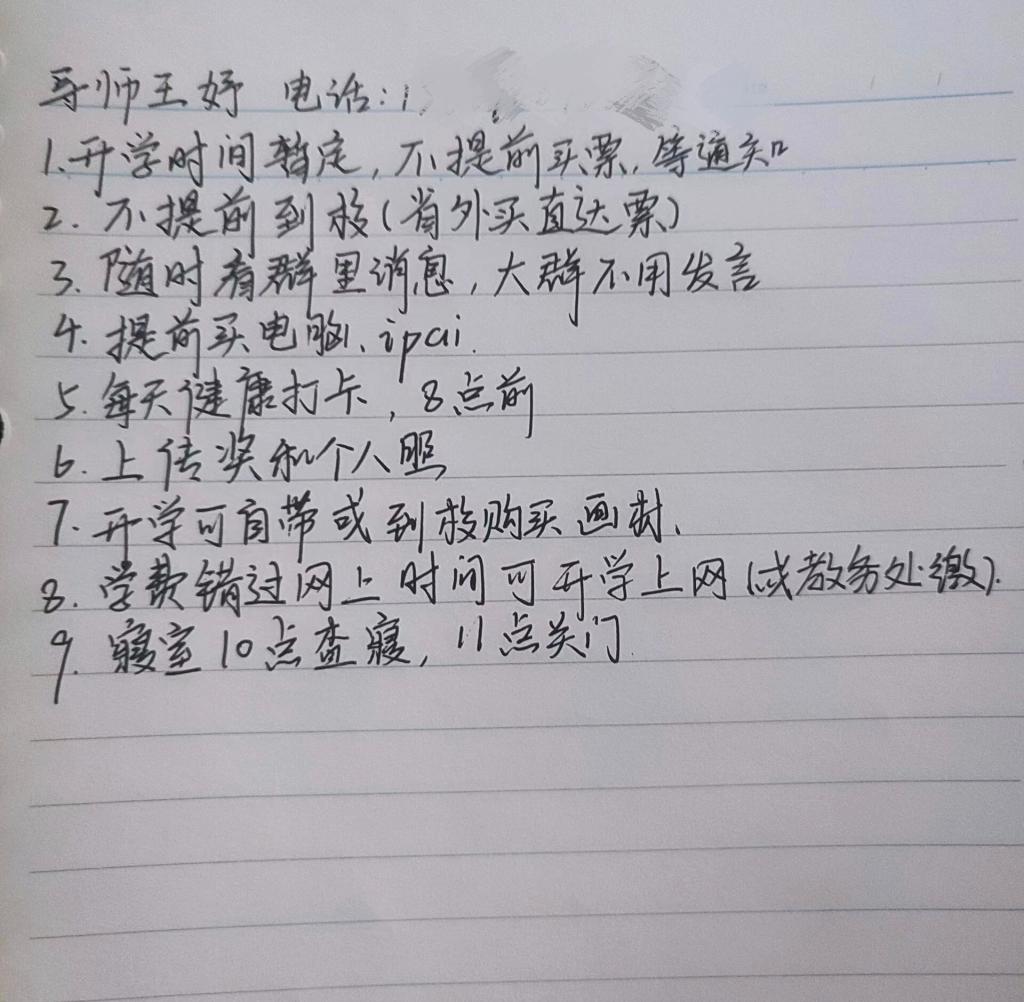 导师王妤 电话:1
1.开学时间暂定,不提前买票,等通知
2.不提前到校(省外买直达票)
3.随时看群里消息,大群不用发言
4.提前买电脑、ipai.
5.每天健康打卡,8点前
6.上传奖和个人照
7.开学可自带或到校购买画材.
8.学费错过网上时间可开学上网(或教务处缴).
9.寝室10点查寝,11点关门